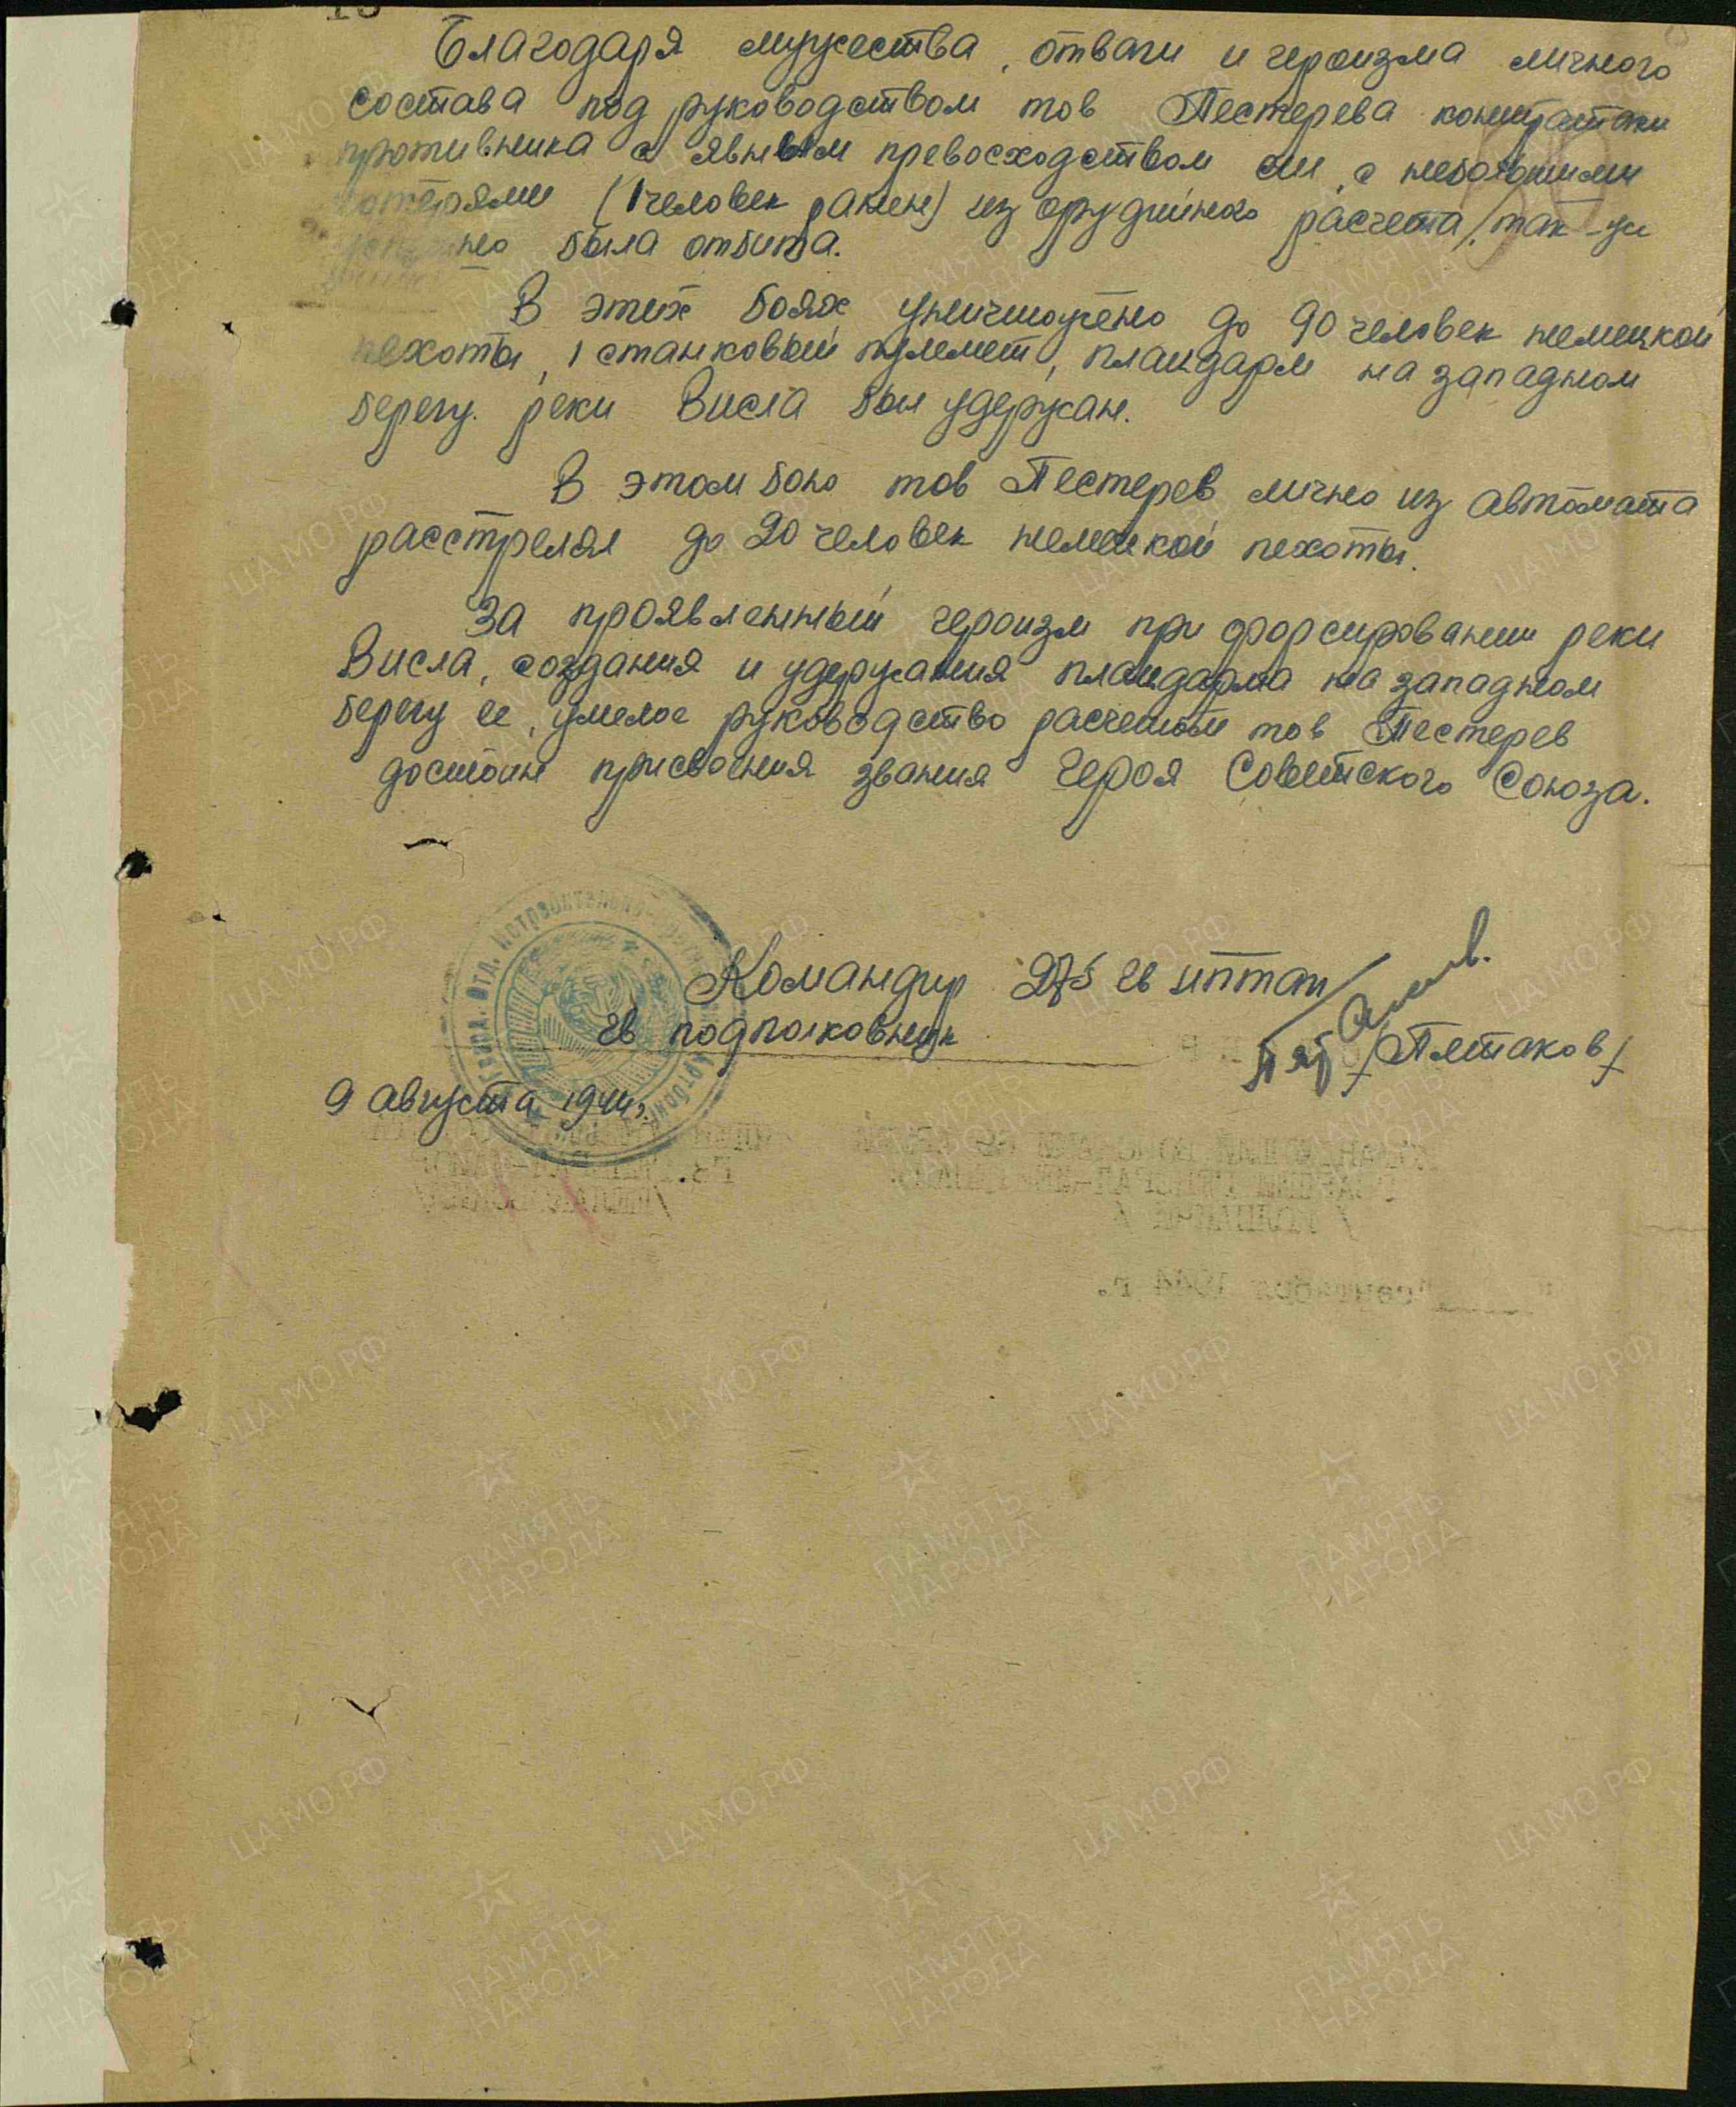 Благодаря мужества, отваги и героизма личного
состава под руководством тов Пестерева контратаки
противника с явным превосходством сил, с небольшими
потерями (1 человек ранен) из орудийного расчета, так-же
была отбита.
В этих боях уничтожено до 90 человек немецкой
пехоты, 1 станковый пулемет, плацдарм на западном
берегу реки Висла был удержан.
В этом бою тов Пестерев лично из автомата
расстрелял до 20 человек немецкой пехоты.
За проявленный героизм при форсировании реки
Висла, создания и удержания плацдарма на западном
берегу ее, умелое руководство расчетом тов Пестерев
достоин присвоения звания Героя Советского Союза.
Командир 275 гв иптап
гв подполковник /Пятаков/
9 августа 1944г.
сентября 1944 г.
ПАМЯТЬ НАРОДА
ЦА МО РФ